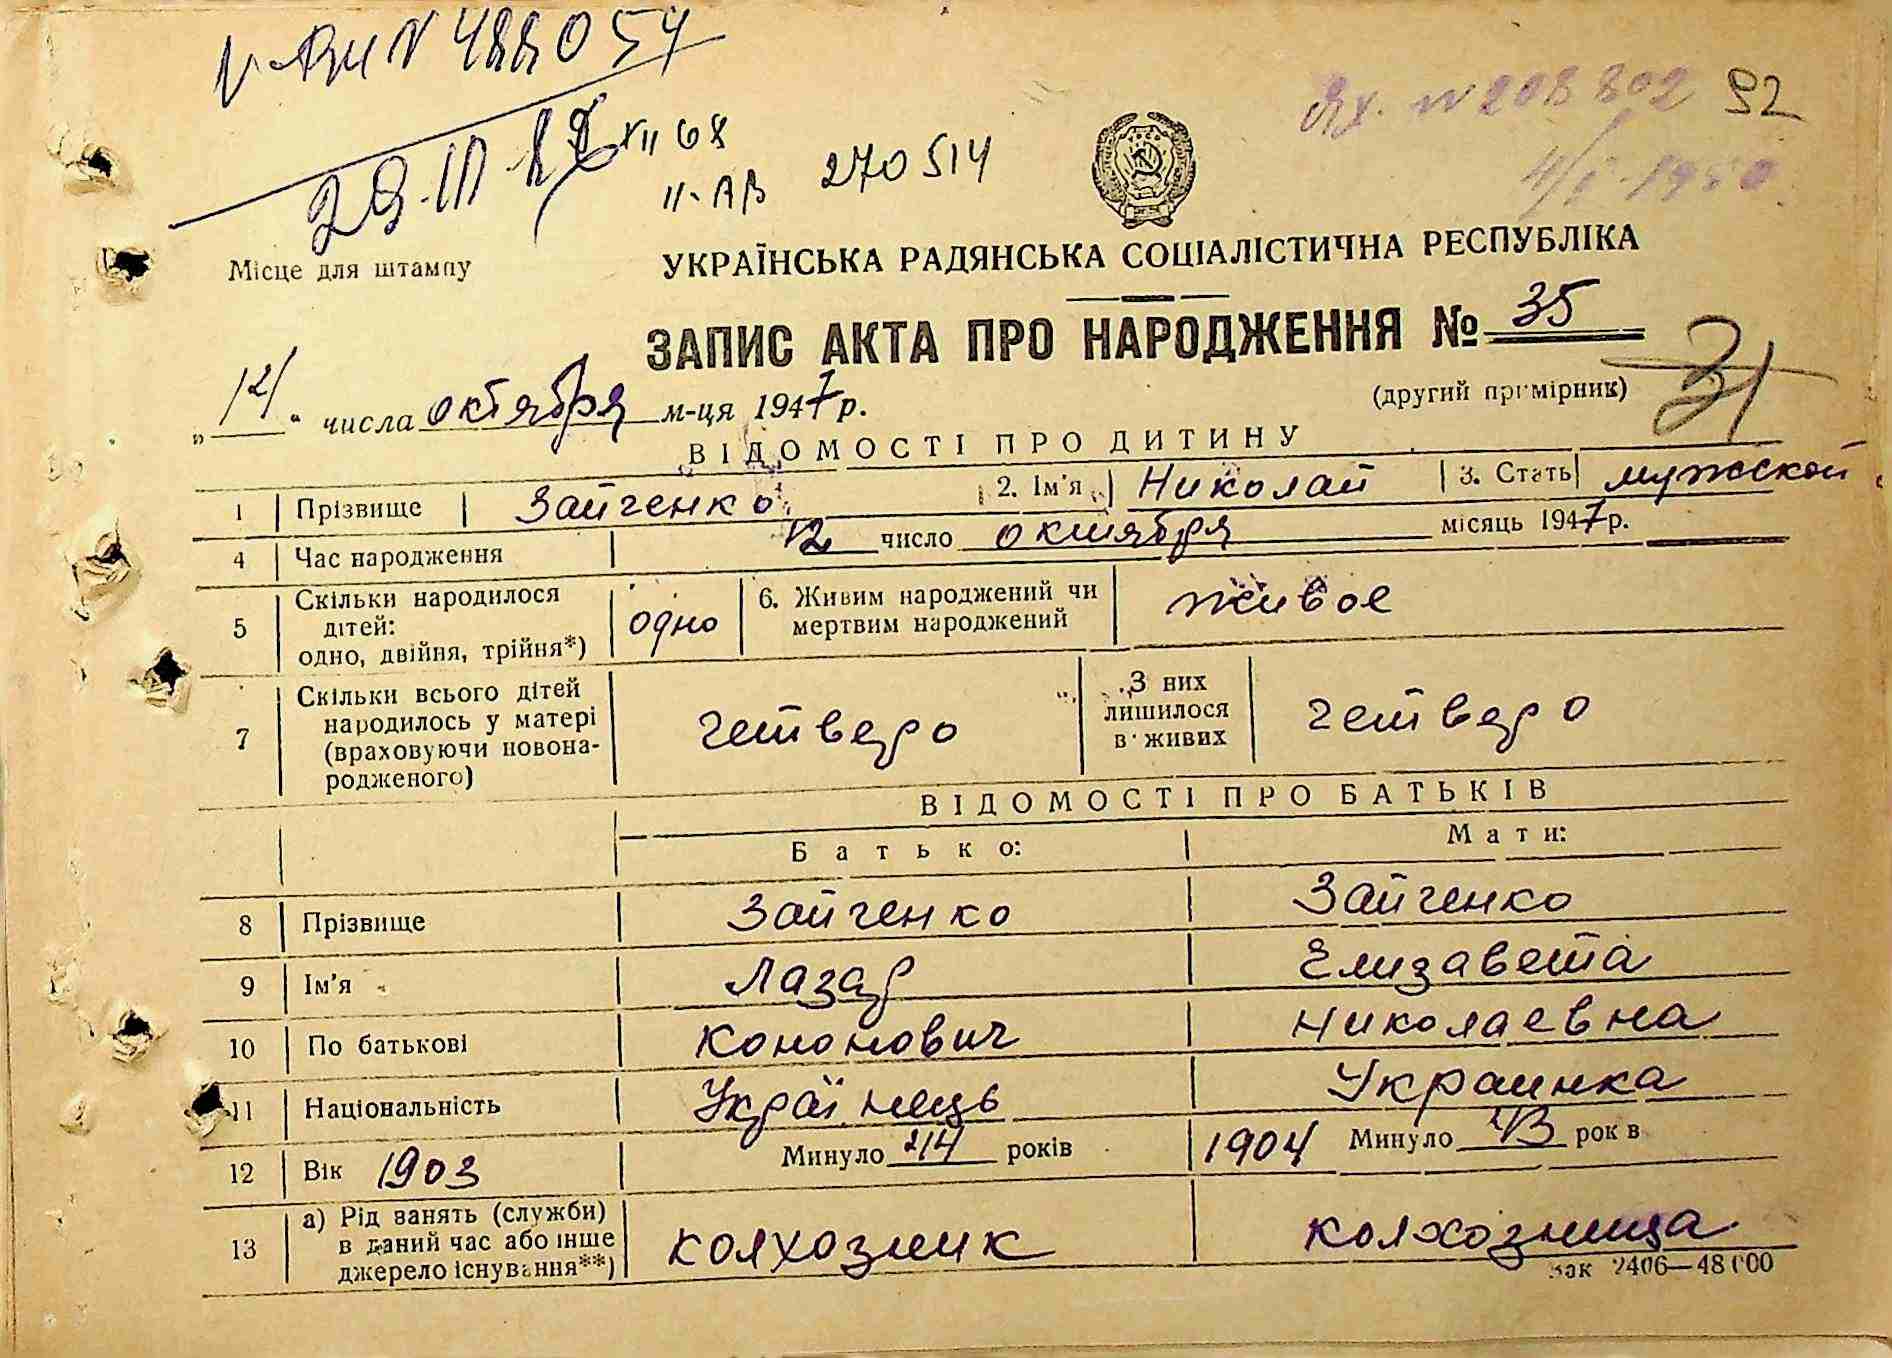 V-ЯИ N 488054
29.III 87 XII 68
II-АВ 270514
ЯХ. N 208802 92
4/I-1950
Місце для штампу
УКРАЇНСЬКА РАДЯНСЬКА СОЦІАЛІСТИЧНА РЕСПУБЛІКА
ЗАПИС АКТА ПРО НАРОДЖЕННЯ № 35
(другий примірник) 31
„12“ числа октября м-ця 1947 р.
ВІДОМОСТІ ПРО ДИТИНУ
1 Прізвище Зайченко 2. Ім'я Николай 3. Стать мужской
4 Час народження 12 число октября місяць 1947 р.
5 Скільки народилося дітей: одно, двійня, трійня*) одно 6. Живим народжений чи мертвим народжений живое
7 Скільки всього дітей народилось у матері (враховуючи новонародженого) четверо З них лишилося в живих четверо
ВІДОМОСТІ ПРО БАТЬКІВ
Батько: Мати:
8 Прізвище Зайченко Зайченко
9 Ім'я Лазар Елизавета
10 По батькові Кононович Николаевна
11 Національність Українець Украинка
12 Вік 1903 Минуло 44 років 1904 Минуло 43 років
13 а) Рід занять (служби) в даний час або інше джерело існування**) колхозник колхозница
Зак 2406—48000